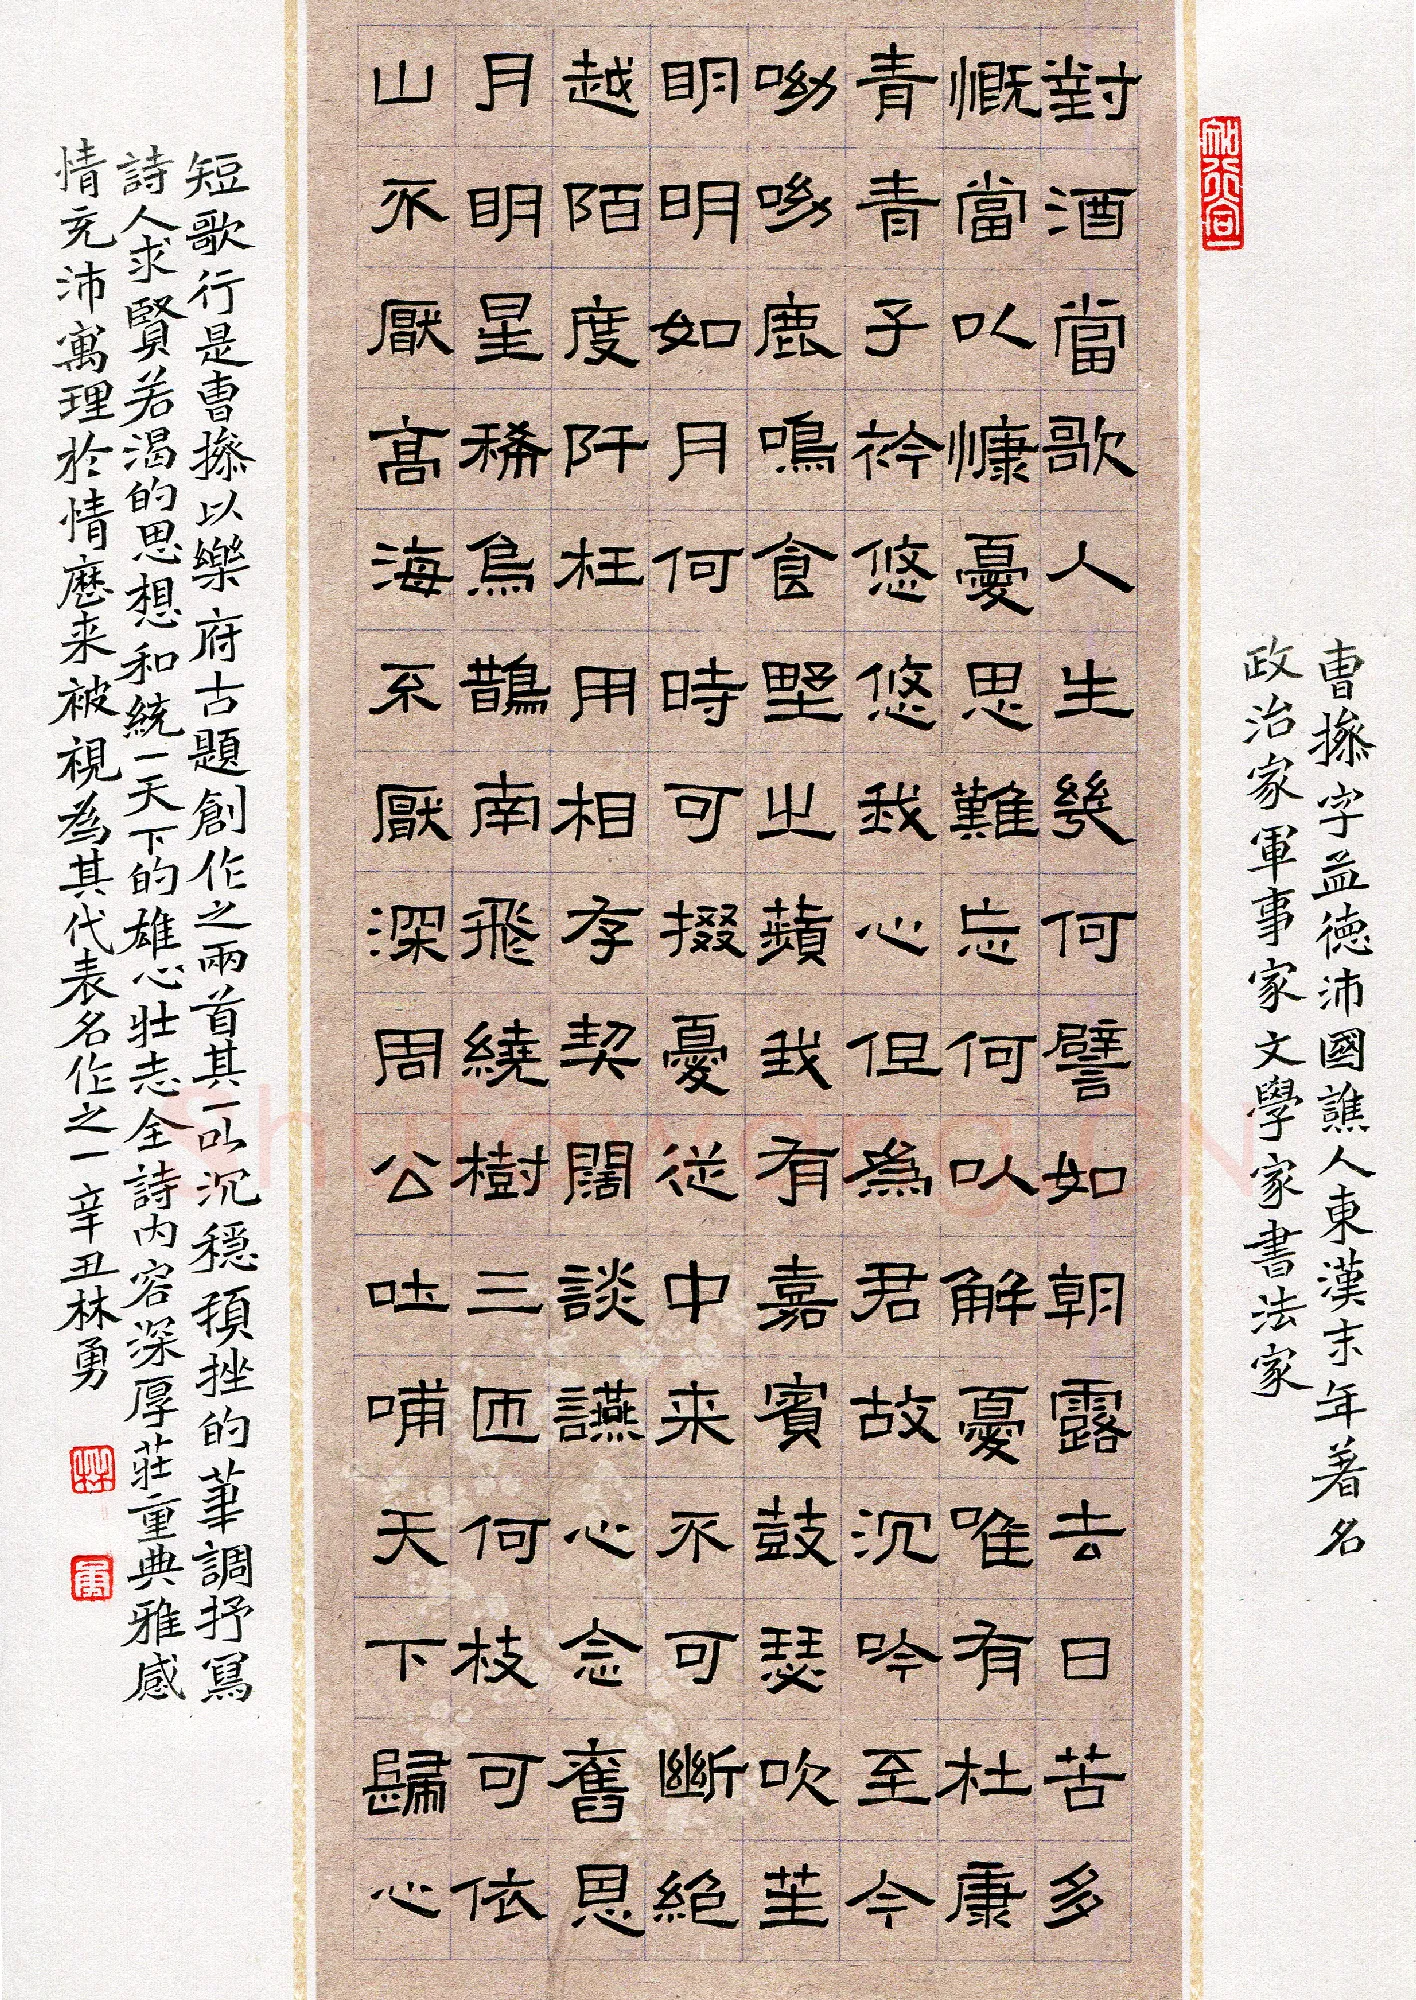 知行合一
曹操字益德沛國譙人東漢末年著名
政治家軍事家文學家書法家
對酒當歌人生幾何譬如朝露去日苦多
慨當以慷憂思難忘何以解憂唯有杜康
青青子衿悠悠我心但為君故沉吟至今
呦呦鹿鳴食野之蘋我有嘉賓鼓瑟吹笙
明明如月何時可掇憂從中来不可斷絕
越陌度阡枉用相存契闊談讌心念舊恩
月明星稀烏鵲南飛繞樹三匝何枝可依
山不厭高海不厭深周公吐哺天下歸心
短歌行是曹操以樂府古題創作之兩首其一以沉穩頓挫的筆調抒寫
詩人求賢若渴的思想和統一天下的雄心壯志全詩内容深厚莊重典雅感
情充沛寓理於情歷来被視為其代表名作之一辛丑林勇
林
勇
Shufawang.CN